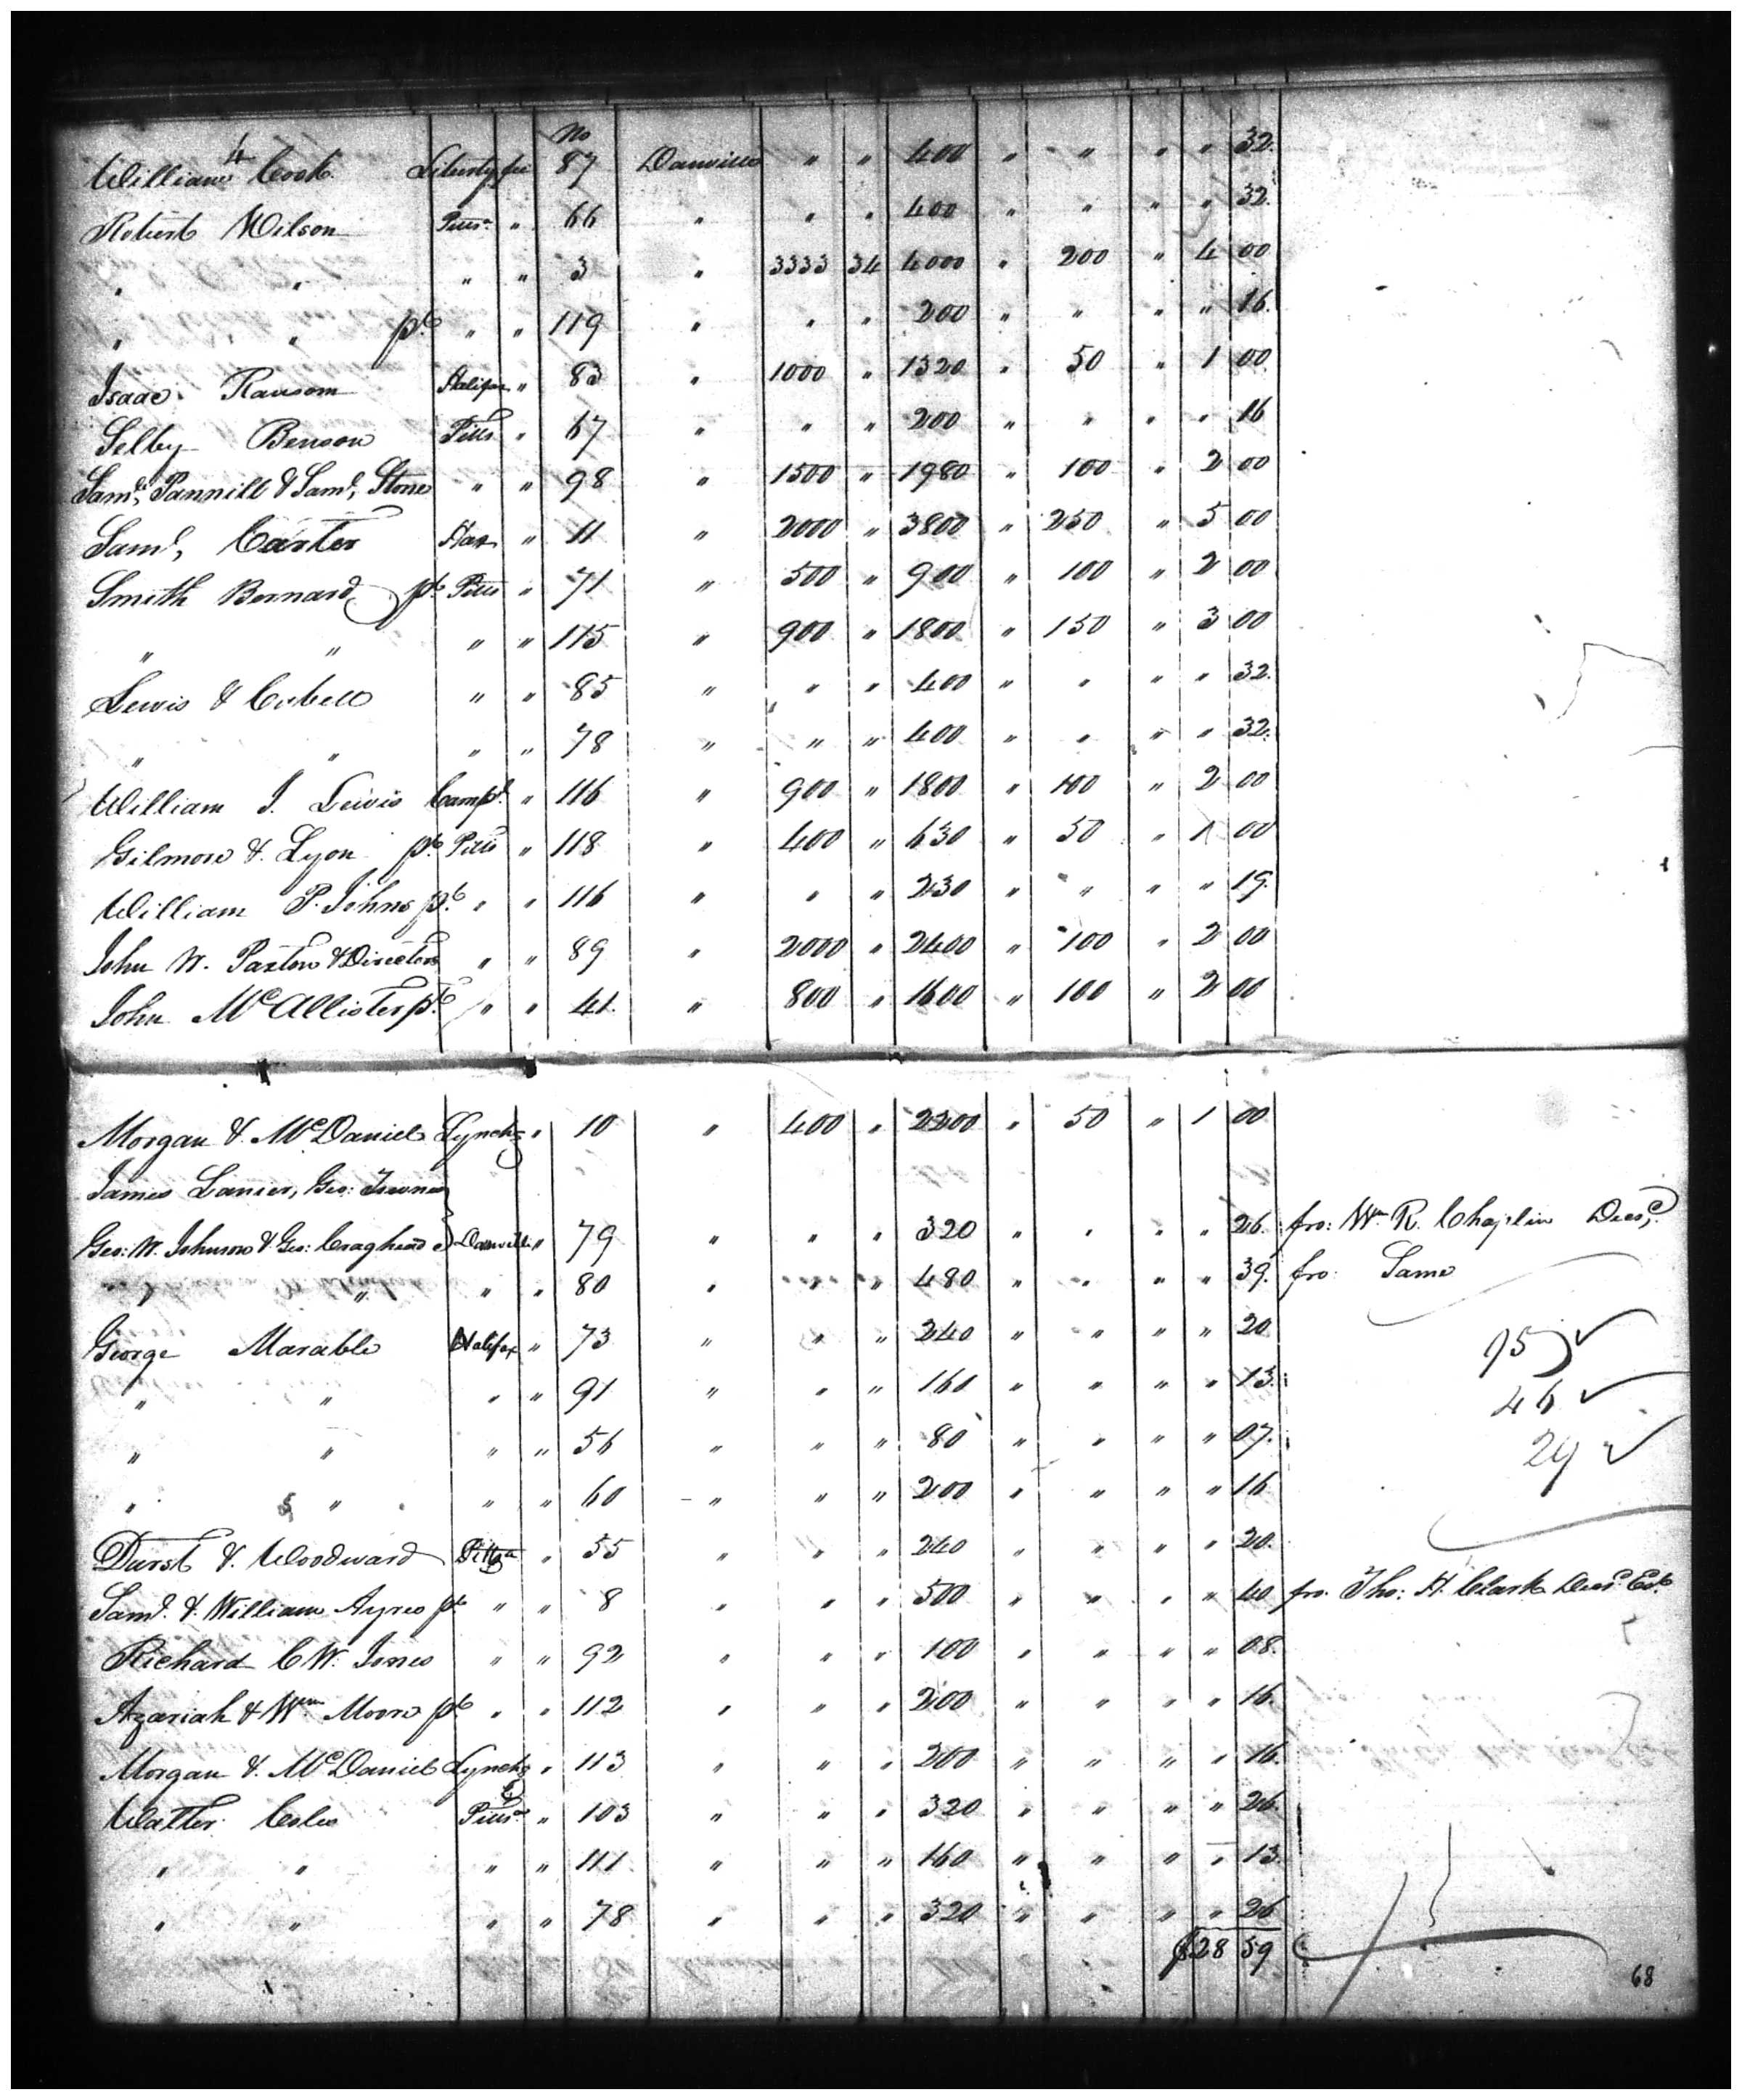 No
William Cook Liberty fee 87 Danville " " 400 " " " " 32.
Robert Wilson Pitts a " 66 " " " 400 " " " " 32.
" " " " 3 " 3333 34 4000 " 200 " 4 00
" " pt. " " 119 " " " 200 " " " " 16.
Isaac Ransom Halifax " 83 " 1000 " 1320 " 50 " 1 00.
Selby Benson Pitts " 67 " " " 200 " " " " 16
Saml. Pannill & Saml. Stone " " 98 " 1500 " 1980 " 100 " 2 00
Saml, Carter Hax " 11 " 2000 " 3800 " 250 " 5 00
Smith Bernard pt. Pitts " 71 " 500 " 900 " 100 " 2 00
" " " " 115 " 900 " 1800 " 150 " 3 00
Lewis & Cobell " " 85 " " " 400 " " " " 32.
" " " " 78 " " " 400 " " " " 32.
William J. Lewis Campl. " 116 " 900 " 1800 " 100 " 2 00
Gilmore & Lyon pt. Pitts " 118 " 400 " 630 " 50 " 1 00
William P. Johns pt. " " 116 " " " 230 " " " " 19.
John W. Paxton & Directors " " 89 " 2000 " 2400 " 100 " 2 00
John McAllister pt. " " 41. " 800 " 1600 " 100 " 2 00
Morgan & McDaniel Lynchg " 10 " 400 " 2200 " 50 " 1 00
James Lanier, Geo: Townes
Geo: W. Johnson & Geo: Craghead } Danville " 79 " " " 320 " " " " 26. fro: Wm R. Chaplin Decd.
" " " 80 " " " 480 " " " " 39. fro. Same
George Marable Halifax " 73 " " " 240 " " " " 20
" " " " 91 " " " 161 " " " " 13.
46
" " " " 56 " " " 80 " " " " 07.
29
" " " " 60 " " " 200 " " " " 16
Durst & Woodward Pittsa " 55 " " " 240 " " " " 20.
Saml. & William Ayres pt " " 8 " " " 500 " " " " 40 fro. Tho: H. Clark Decd. Est.
Richard C W. Jones " " 92 " " " 100 " " " " 08.
Azariah & Wm Moore pt " " 112 " " " 200 " " " " 16.
Morgan & McDaniel Lynchg " 113 " " " 200 " " " " 16.
Walter Coles Pitts a " 103 " " " 320 " " " " 26.
" " " " 111 " " " 160 " " " " 13.
" " " " 78 " " " 320 " " " " 26
$28 59
68